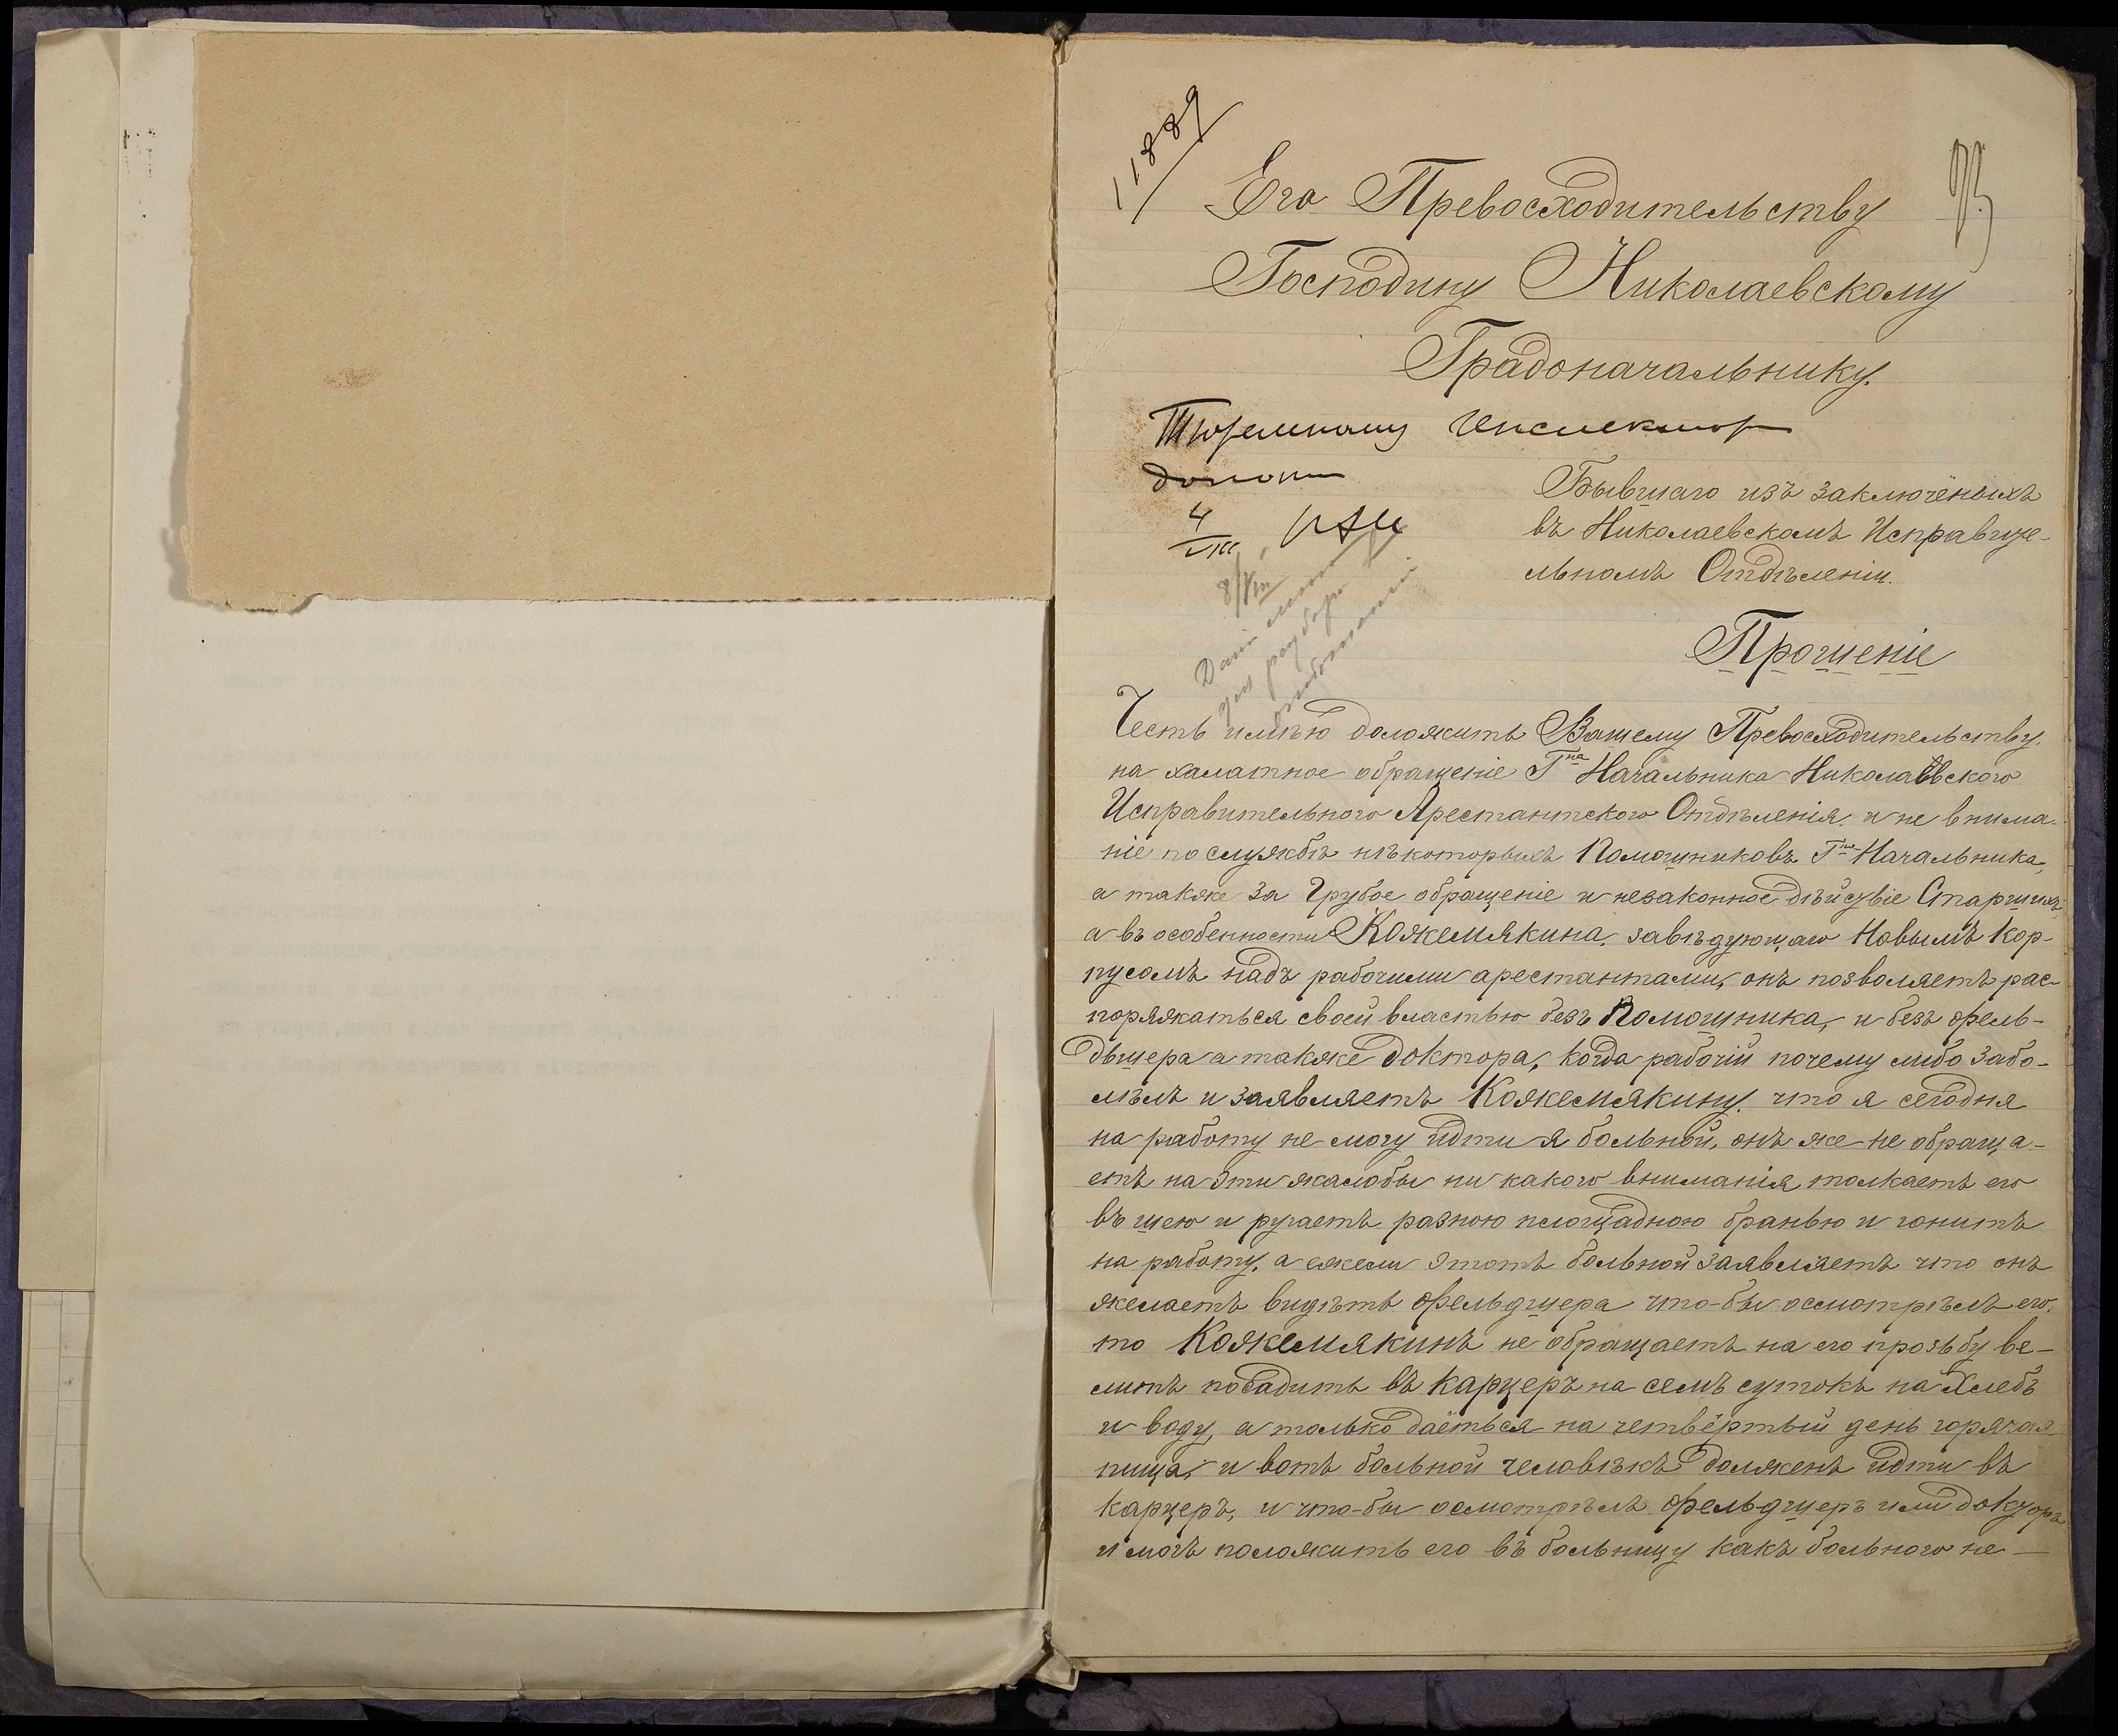 11889
93
Его Превосходительству
Господину Николаевскому
Градоначальнику.
Тюремному Инспектор
4
8/VIII
Бывшаго изъ заключёныхъ
въ Николаевскомъ Исправите-
льномъ Отдѣленіи.
Прошеніе
Честь имѣю доложить Вашему Превосходительству.
на халатное обращеніе Гна Начальника Николаевского
Исправительного Арестантского Отдѣленія. и не внима-
ніе по службѣ нѣкоторыхъ Помошниковъ Гна Начальника,
а также за Грубое обращеніе и незаконное дѣйствіе Старшихъ
а въ особенности Кожемякина. завѣдующаго Новымъ Кор-
пусомъ надъ рабочими арестантами, онъ позволяетъ рас-
поряжаться своей властью безъ Помошника, и безъ фель-
дьшера а также доктора, когда рабочій почему либо забо-
лѣлъ и заявляетъ Кожемякину. что я сегодня
на работу не могу идти я больной, онъ же не обраща-
етъ на эти жалобы ни какого вниманія толкаетъ его
въ шею и ругаетъ разною площадною бранью и гонитъ
на работу, а ежели этотъ больной заявляетъ что онъ
желаетъ видѣть фельдшера что-бы осмотрѣлъ его.
то Кожемякинъ не обращаетъ на его прозьбу ве-
литъ посадить въ карцеръ на семъ сутокъ на Хлебъ
и воду, а только даёться на четвёртый день горячая
пища, и вотъ больной человѣкъ долженъ идти въ
карцеръ, и что-бы осмотрѣлъ фельдшеръ или докторъ
и могъ положить его въ больницу какъ больного не —